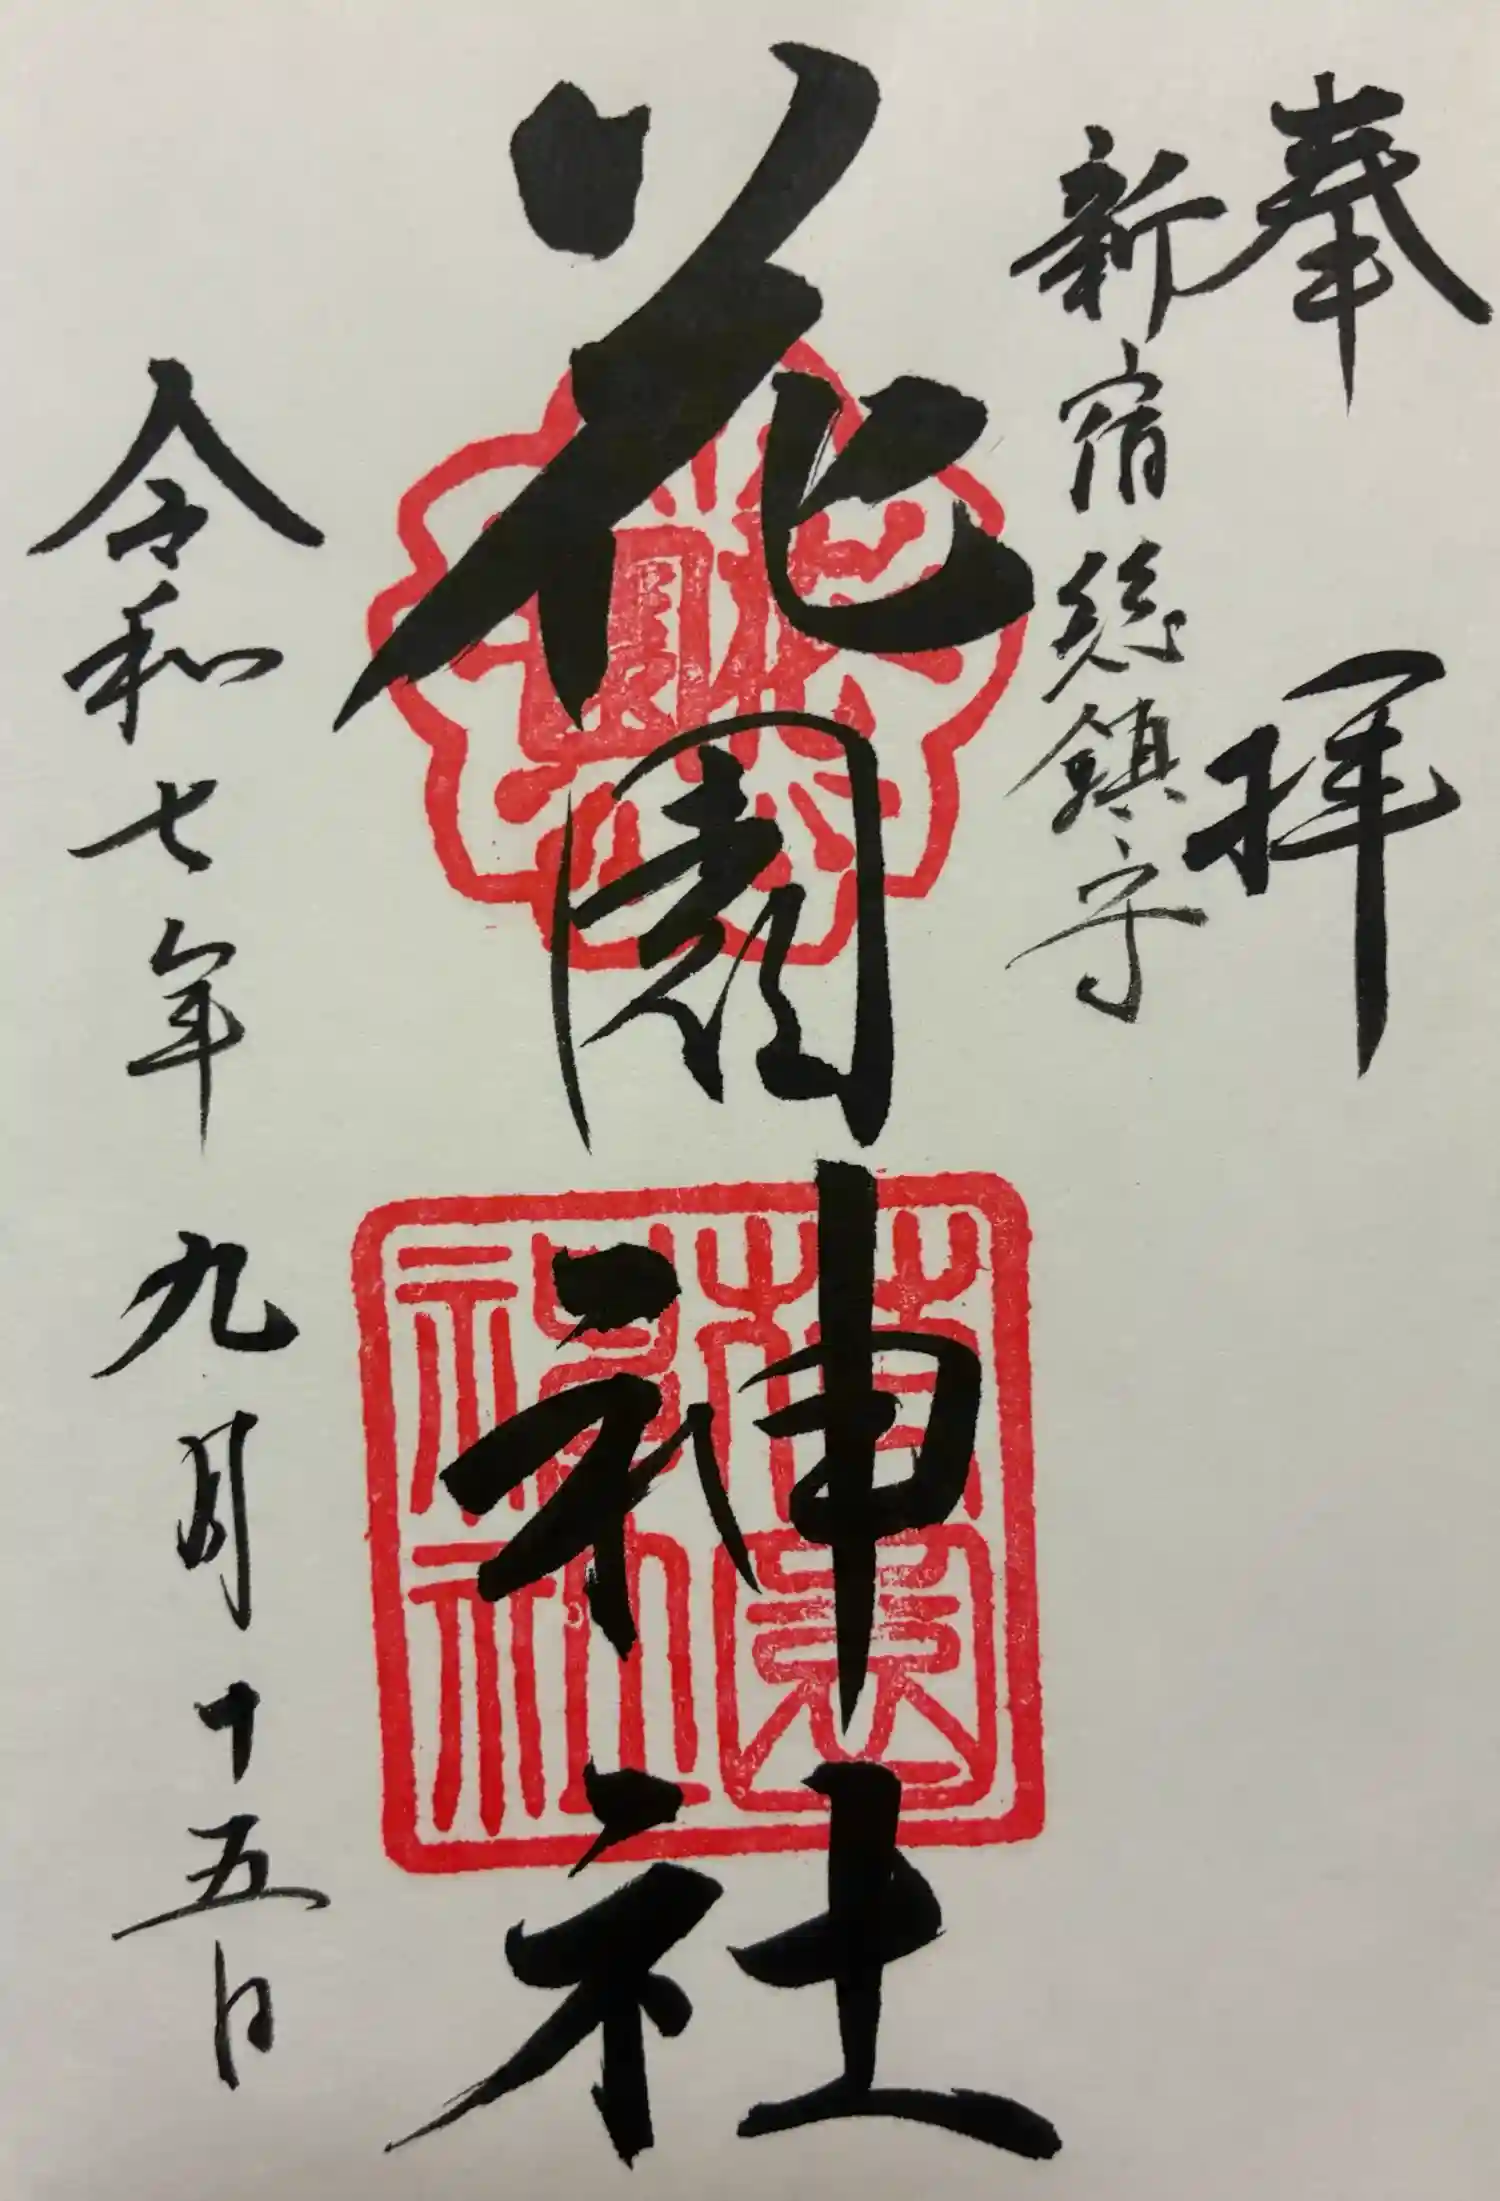 奉拝
新宿總鎮守
花園神社
令和七年九月十五日
花園神社